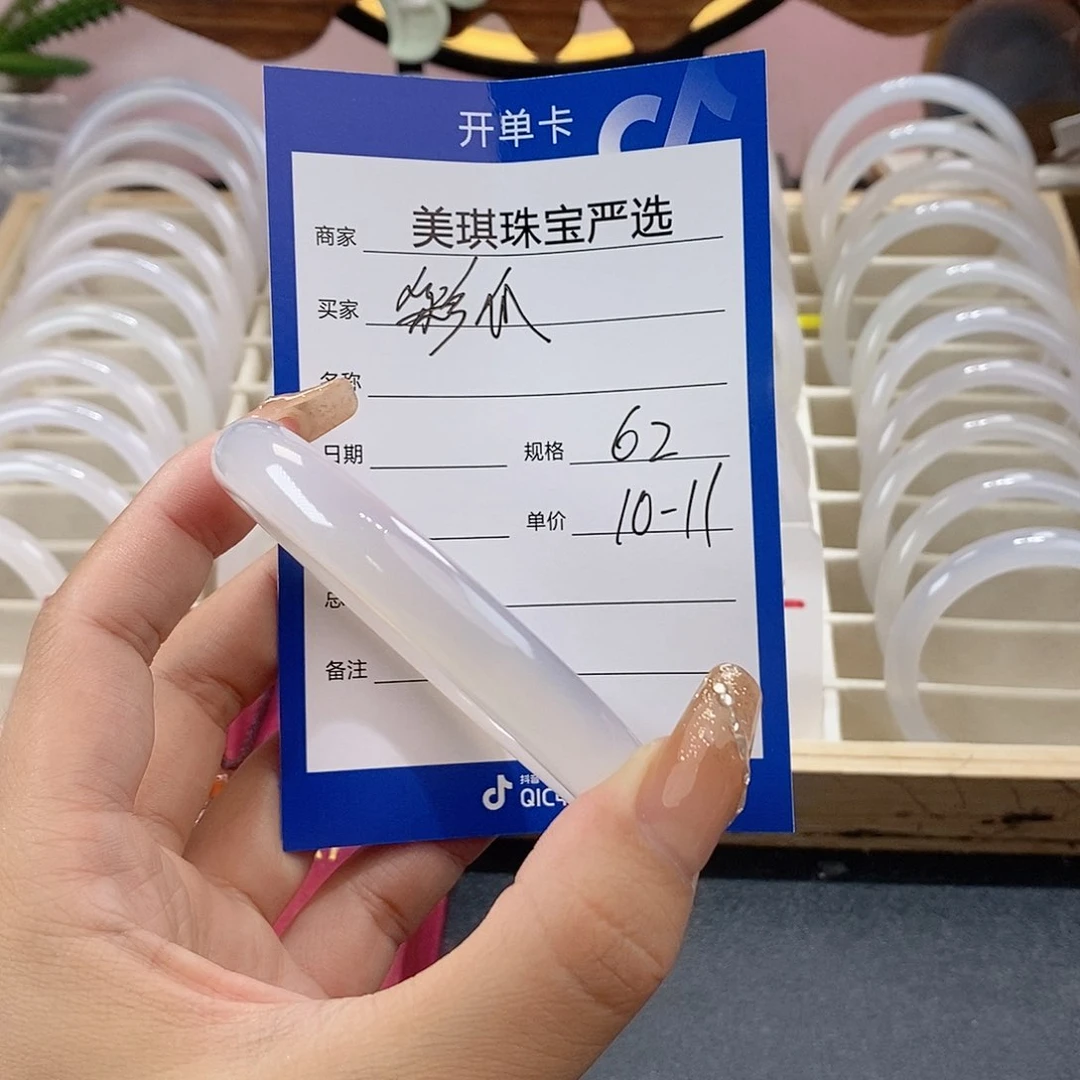 开单卡
商家 美琪珠宝严选
买家
名称
日期 规格 62
单价 10-11
备注
抖音
QIC